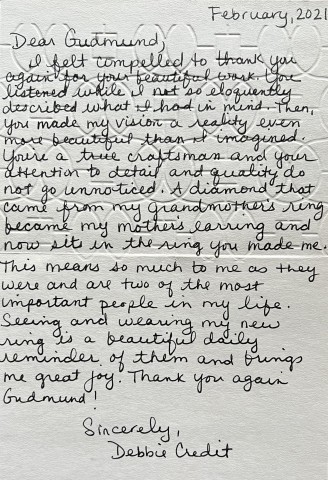 February, 2021
Dear Gudmund,
I felt compelled to thank you
again for your beautiful work. You
listened while I not so eloquently
described what I had in mind. Then,
you made my vision a reality even
more beautiful than I imagined.
You're a true craftsman and your
attention to detail and quality do
not go unnoticed. A diamond that
came from my grandmother's ring
became my mother's earring and
now sits in the ring you made me.
This means so much to me as they
were and are two of the most
important people in my life.
Seeing and wearing my new
ring is a beautiful daily
reminder of them and brings
me great joy. Thank you again
Gudmund!
Sincerely,
Debbie Credit